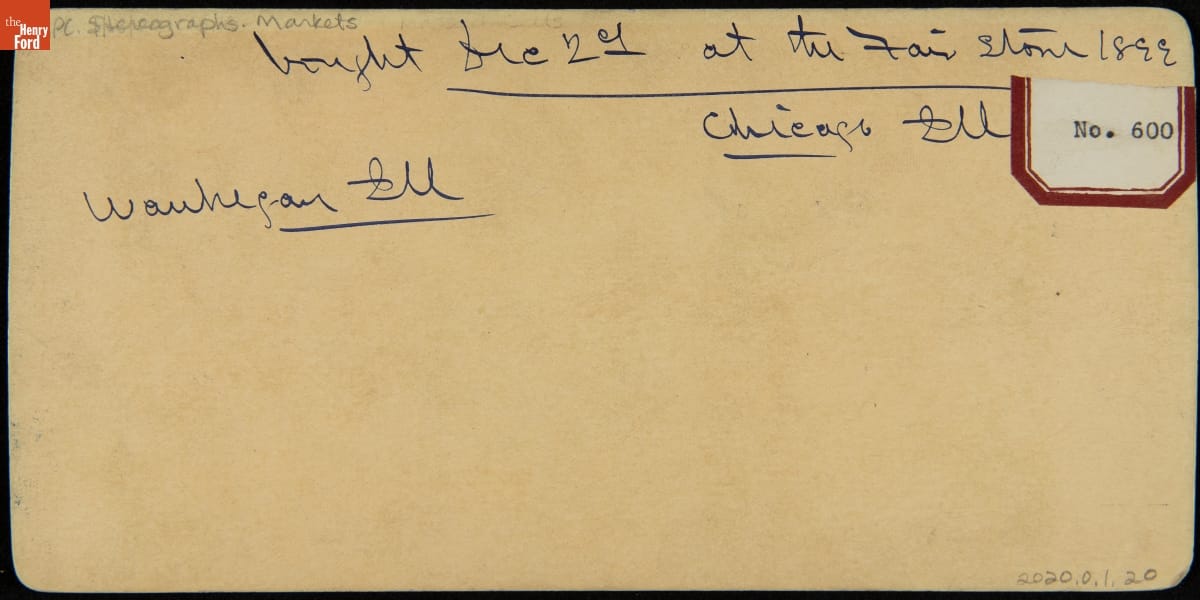 the
Henry
Ford
PC. Stereographs. Markets
bought Dec 29 at the Fair Store 1899
Chicago Ill
No. 600
Waukegan Ill
2020.0.1.20